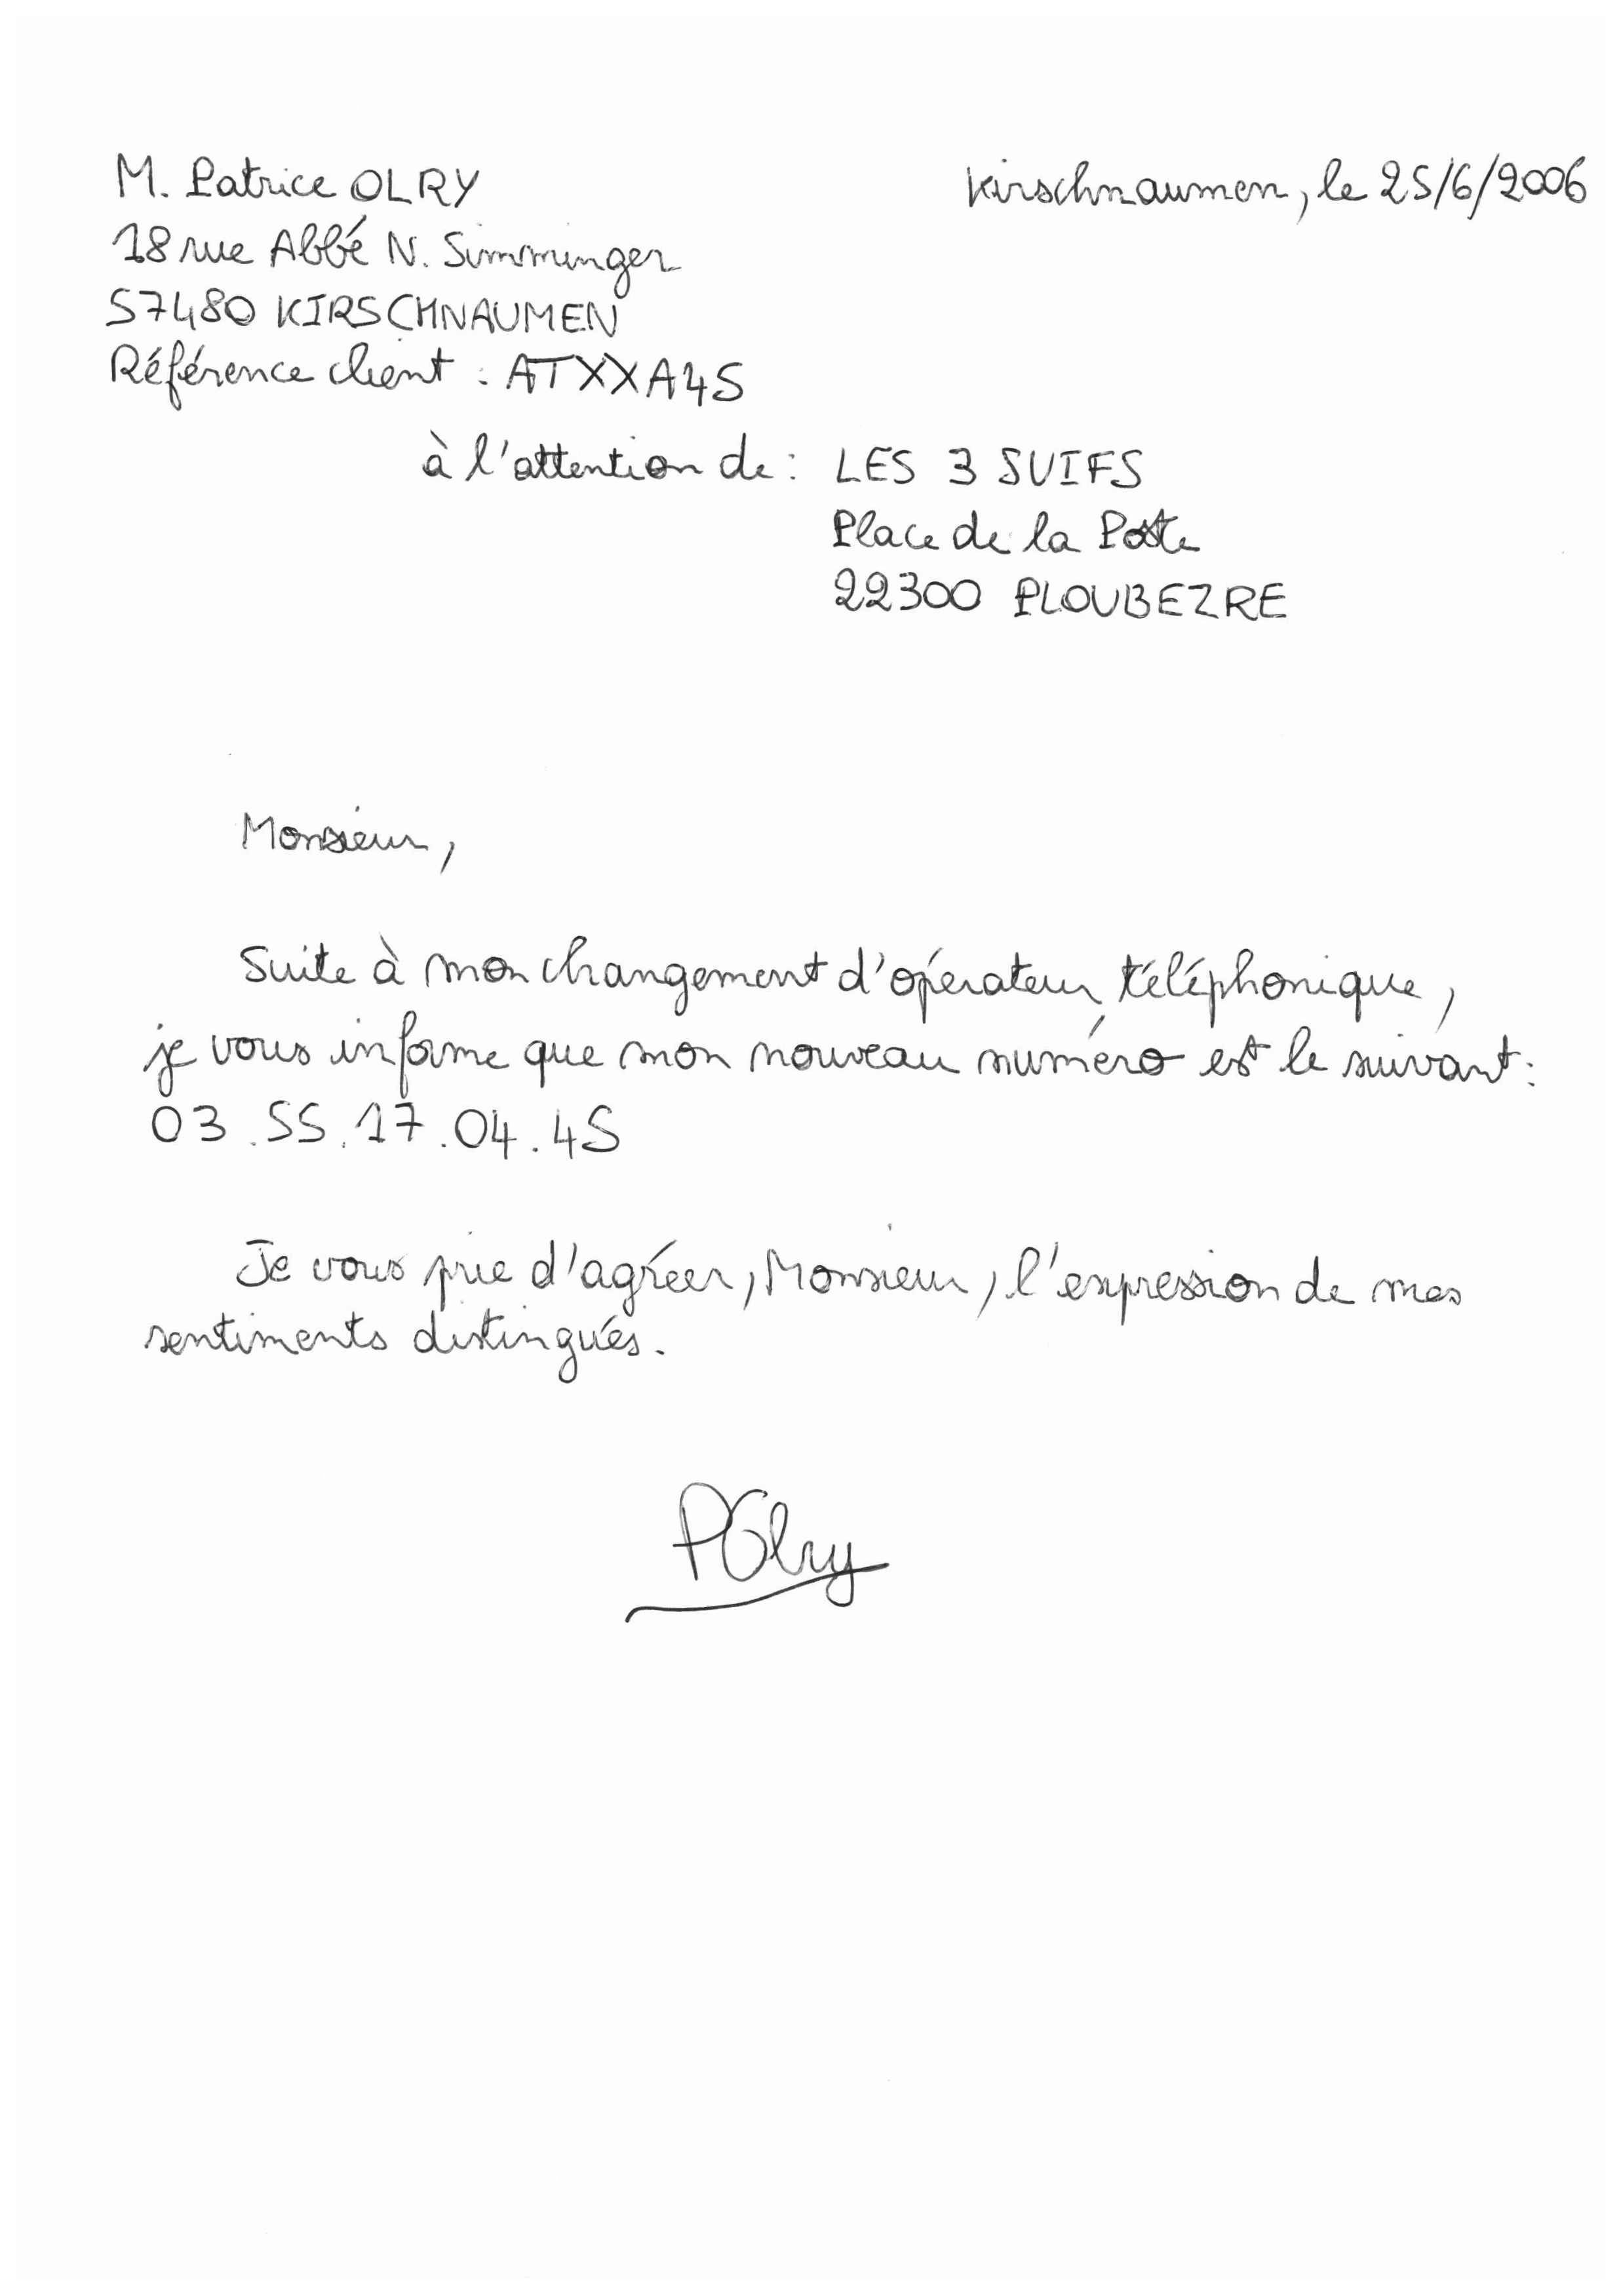 M. Patrice OLRY
Kirschnaumen, le 25/6/2006
18 rue Abbé N. Simminger
57480 KIRSCHNAUMEN
Référence client : ATXXA45
à l'attention de : LES 3 SUIFS
Place de la Poste
22300 PLOUBEZRE
Monsieur,
Suite à mon changement d'opérateur téléphonique,
je vous informe que mon nouveau numéro est le suivant :
03.55.17.04.45
Je vous prie d'agréer, Monsieur, l'expression de mes
sentiments distingués.
POlry